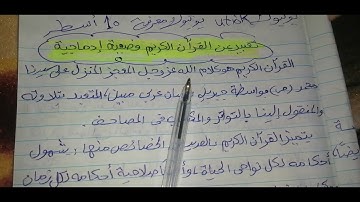 يوتيوب utek يوتيوب معرفة 10 أسطر
تعبير عن القرآن الكريم وضعية إدماجية
القرآن الكريم هو كلام الله عز وجل المعجز المنزل على سيدنا
محمد (ص) بواسطة جبريل عربي مبين، المتعبد بتلاوته
والمنقول إلينا بالتواتر في المصاحف.
يتميز القرآن الكريم بالعديد الخصائص منها: شمول
أحكامه لكل نواحي الحياة صلاحية أحكامه لكل زمان